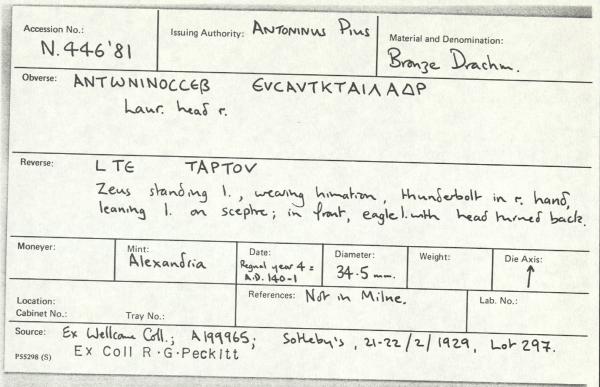 Accession No.:
N.446'81
Issuing Authority: ANTONINUS PIUS
Material and Denomination:
Bronze Drachm.
Obverse: ΑΝΤѠΝΙΝΟϹϹΕΒ ΕVϹΑVΤΚΤΑΙΛΑΔΡ
Laur. head r.
Reverse: L ΤЄ ΤΑΡΤΟV
Zeus standing l., wearing himation, thunderbolt in r. hand,
leaning l. on sceptre; in front, eagle l. with head turned back.
Moneyer:
Mint:
Alexandria
Date:
Regnal year 4 =
A.D. 140-1
Diameter:
34.5 mm.
Weight:
Die Axis:
↑
Location:
Cabinet No.: Tray No.:
References: Not in Milne.
Lab. No.:
Source: Ex Wellcome Coll.; A199965; Sotheby's, 21-22/2/1929, Lot 297.
P55298 (S) Ex Coll R.G.Peckitt